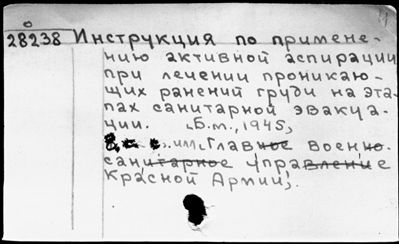 28238 Инструкция по примене-
нию активной аспирации
при лечении проникаю-
щих ранений груди на эта-
пах санитарной эвакуа-
ции. [Б.м., 1945,
Главное военно-
санитарное управление
Красной Армии].